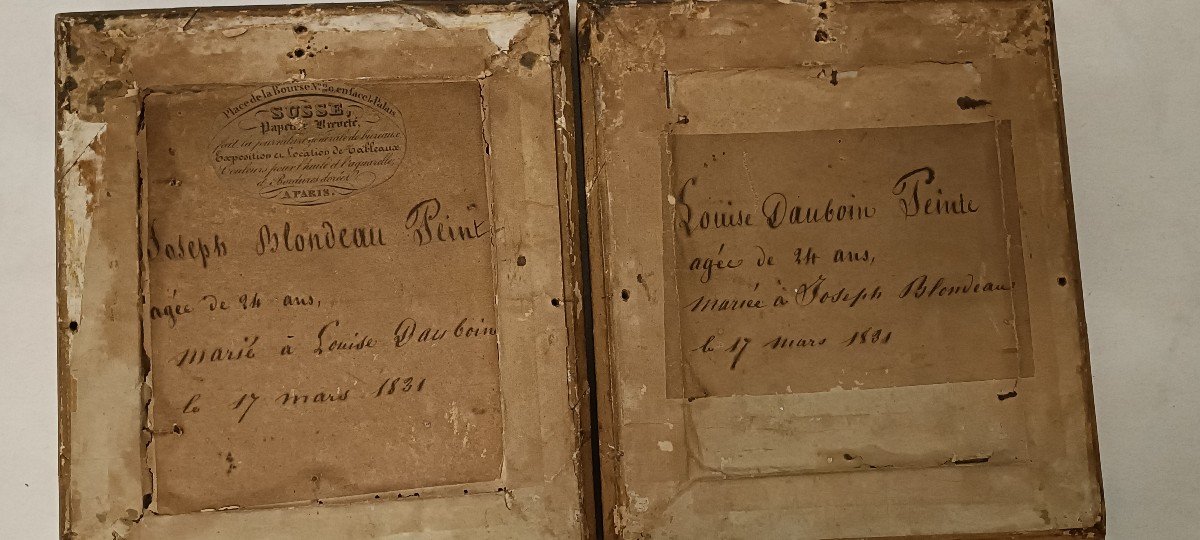 Place de la Bourse No. 20 en face le Palais
SUSSE,
Papet.r Breveté,
fait la fourniture générale de bureaux
Exposition et Location de Tableaux
Couleurs pour l'huile et l'aquarelle,
et Bordures dorées
A PARIS.
Joseph Blondeau Peint
agée de 24 ans,
marié à Louise Dauboin
le 17 mars 1831
Louise Dauboin Peinte
agée de 24 ans,
mariée à Joseph Blondeau
le 17 mars 1831